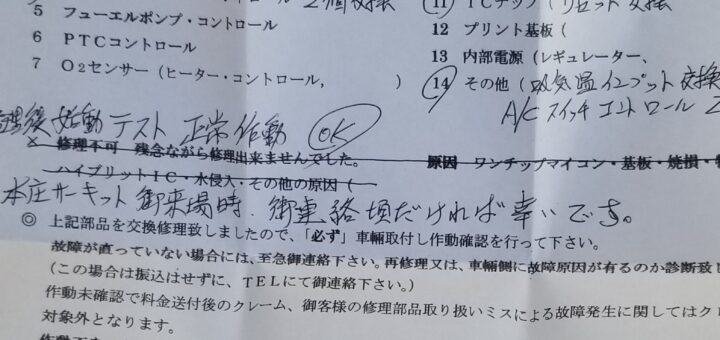 2個交換
⑪ ICチップ(リセット交換
5 フューエルポンプ・コントロール
12 プリント基板(
6 PTCコントロール
13 内部電源(レギュレーター、
7 O₂センサー(ヒーター・コントロール, )
⑭ その他(吸気温インプット交換
A/C スイッチ コントロール 2
後 始動テスト 正常作動 OK
× 修理不可 残念ながら修理出来ませんでした。 原因 ワンチップマイコン・基板・焼損・
ハイブリットIC・水侵入・その他の原因(
本庄サーキット御来場時、御連絡頂だければ幸いです。
◎ 上記部品を交換修理致しましたので、「必ず」車輛取付し作動確認を行って下さい。
故障が直っていない場合には、至急御連絡下さい。再修理又は、車輛側に故障原因が有るのか診断致し
(この場合は振込はせずに、TELにて御連絡下さい。)
作動未確認で料金送付後のクレーム、御客様の修理部品取り扱いミスによる故障発生に関してはク
対象外となります。